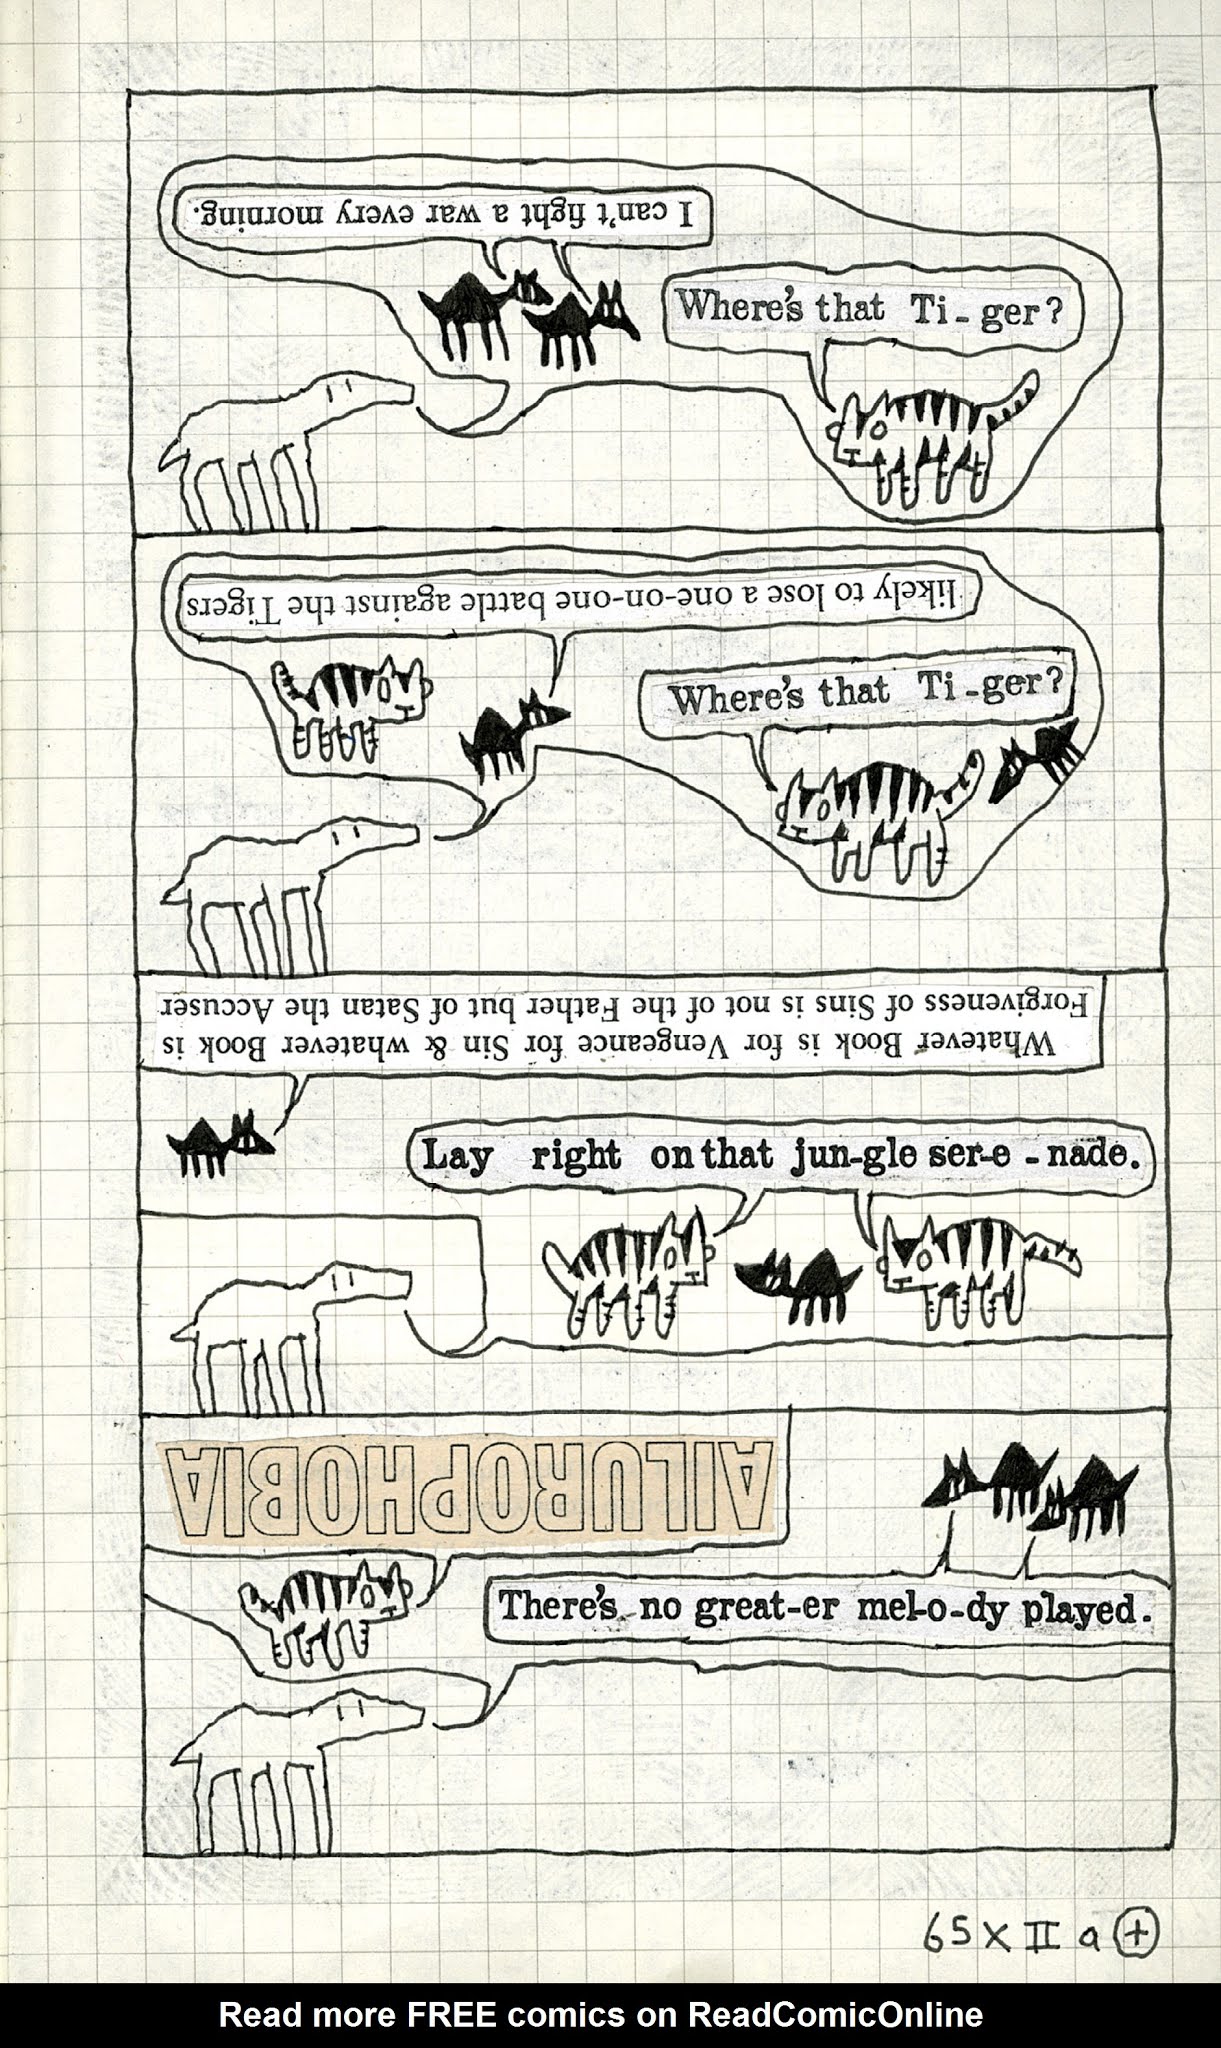 I can't fight a war every morning.
Where's that Ti - ger?
likely to lose a one-on-one battle against the Tigers
Where's that Ti - ger?
Whatever Book is for Vengeance for Sin & whatever Book is
Forgiveness of Sins is not of the Father but of Satan the Accuser
Lay right on that jun-gle ser-e - nade.
AILUROPHOBIA
There's no great-er mel-o-dy played.
65 X II a +
Read more FREE comics on ReadComicOnline